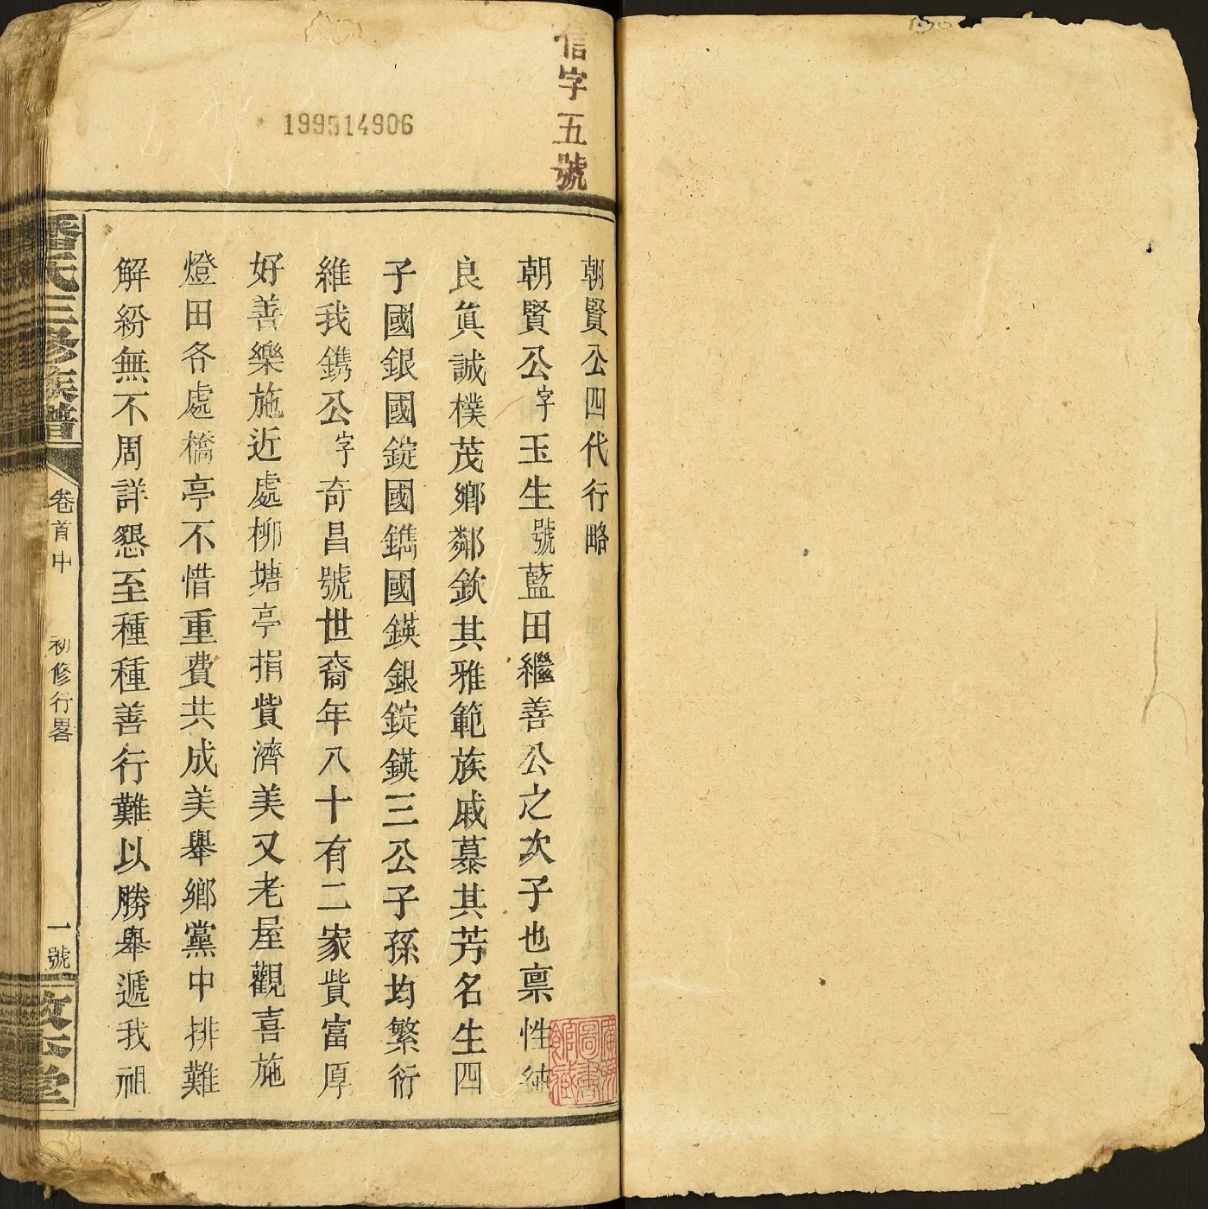 信字五號
199514906
朝賢公四代行略
朝賢公字玉生號藍田繼善公之次子也禀性純
良眞誠樸茂鄉鄰欽其雅範族戚慕其芳名生四
子國銀國錠國鐫國鍈銀錠鍈三公子孫均繁衍
維我鐫公字奇昌號世裔年八十有二家貲富厚
好善樂施近處柳塘亭捐貲濟美又老屋觀喜施
燈田各處橋亭不惜重費共成美舉鄉黨中排難
解紛無不周詳懇至種種善行難以勝舉遞我祖
潘氏三修族譜
卷首中
初修行畧
一號